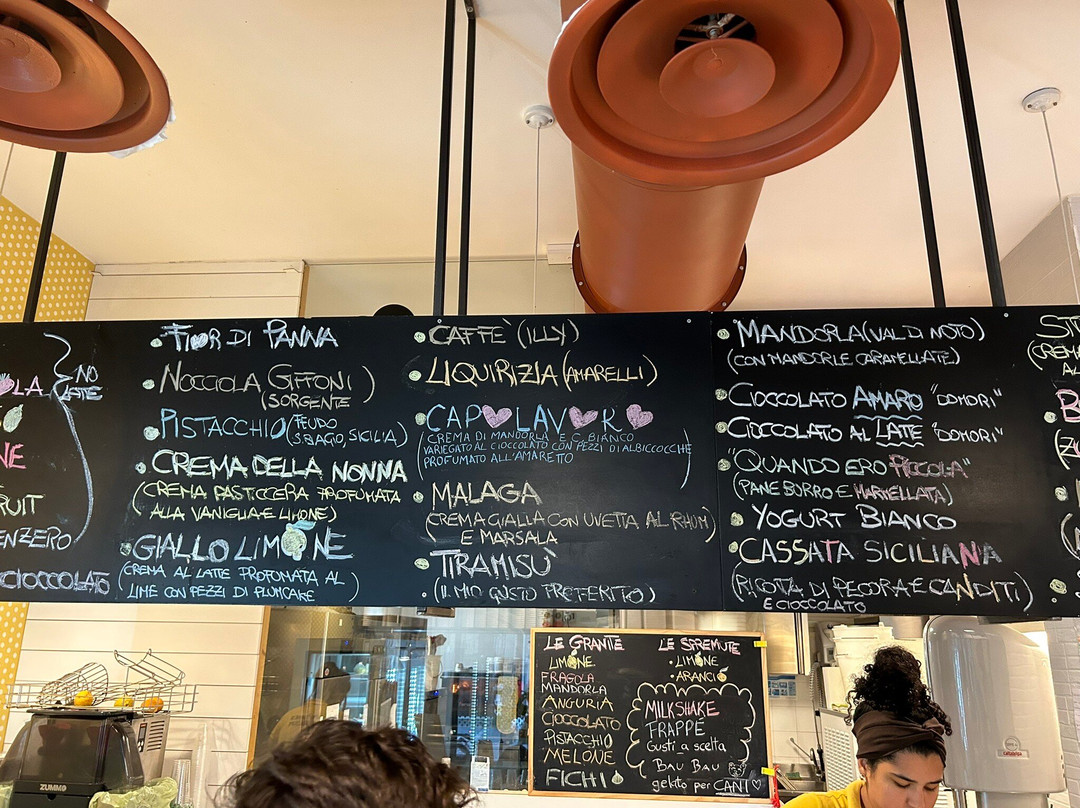 OLA
NO
LATTE
NE
RUIT
ENZERO
CIOCCOLATO
FIOR DI PANNA
NOCCIOLA GIFFONI
(SORGENTE)
PISTACCHIO (FEUDO
S. BIAGIO, SICILIA)
CREMA DELLA NONNA
(CREMA PASTICCERA PROFUMATA
ALLA VANIGLIA E LIMONE)
GIALLO LIMONE
(CREMA AL LATTE PROFUMATA AL
LIME CON PEZZI DI PLUMCAKE)
CAFFÈ (ILLY)
LIQUIRIZIA (AMARELLI)
CAPOLAVORO
(CREMA DI MANDORLA E C. BIANCO
VARIEGATO AL CIOCCOLATO CON PEZZI DI ALBICCOCCHE
PROFUMATO ALL'AMARETTO)
MALAGA
(CREMA GIALLA CON UVETTA AL RHUM
E MARSALA)
TIRAMISÙ
(IL MIO GUSTO PREFERITO)
MANDORLA (VAL DI NOTO)
(CON MANDORLE CARAMELLATE)
CIOCCOLATO AMARO "DOMORI"
CIOCCOLATO AL LATTE "DOMORI"
"QUANDO ERO PICCOLA"
(PANE BURRO E MARMELLATA)
YOGURT BIANCO
CASSATA SICILIANA
(RICOTTA DI PECORA E CANDITI)
E CIOCCOLATO
ST
(CREMA
AL
LE GRANITE
LIMONE
FRAGOLA
MANDORLA
ANGURIA
CIOCCOLATO
PISTACCHIO
MELONE
FICHI
LE SPREMUTE
• LIMONE
• ARANCIO
MILKSHAKE
FRAPPÈ
Gusti a scelta
BAU BAU
gelato per CANI
ZUMMO